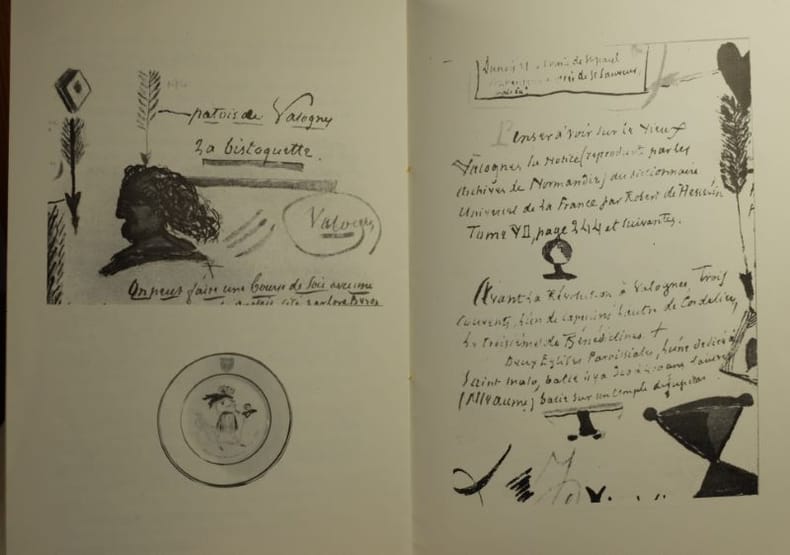 patois de Valognes
La bistoquette.
Valognes
On peut faire une Bourse de Soie avec une
de St Paul
de St Sauveur
Penser à voir sur le Vieux
Valognes la Notice (reproduit par les
Archives de Normandie) du diccionnaire
Universel de la France par Robert de Hesseln
Tome VI, page 244 et suivantes.
Avant la Révolution à Valognes, Trois
Couvents, l'un de capucins l'autre de Cordeliers,
Le troisième de Bénédictines. +
Deux Eglises Paroissiales, l'une dediée à
Saint malo, batie il y a
(Alleaume) batie sur un temple de Jupiter